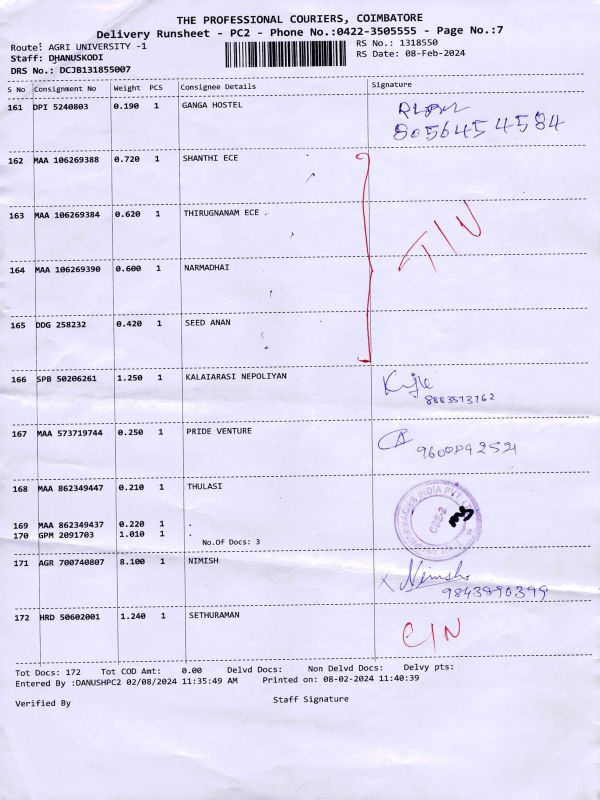 THE PROFESSIONAL COURIERS, COIMBATORE
Delivery Runsheet - PC2 - Phone No.:0422-3505555 - Page No.:7
Route: AGRI UNIVERSITY -1
RS No.: 1318550
Staff: DHANUSKODI
RS Date: 08-Feb-2024
DRS No.: DCJB131855007
S No Consignment No Weight PCS Consignee Details Signature
161 DPI 5240803 0.190 1 GANGA HOSTEL
8056454584
162 MAA 106269388 0.720 1 SHANTHI ECE
163 MAA 106269384 0.620 1 THIRUGNANAM ECE .
T/N
164 MAA 106269390 0.600 1 NARMADHAI
165 DDG 258232 0.420 1 SEED ANAN
166 SPB 50206261 1.250 1 KALAIARASI NEPOLIYAN
8883573762
167 MAA 573719744 0.250 1 PRIDE VENTURE
168 MAA 862349447 0.210 1 THULASI
169 MAA 862349437 0.220 1 .
170 GPM 2091703 1.010 1 .
No.Of Docs: 3
CBE-2
171 AGR 700740807 8.100 1 NIMISH
Nimish
9843890399
172 HRD 50602001 1.240 1 SETHURAMAN
C/N
Tot Docs: 172 Tot COD Amt: 0.00 Delvd Docs: Non Delvd Docs: Delvy pts:
Entered By :DANUSHPC2 02/08/2024 11:35:49 AM Printed on: 08-02-2024 11:40:39
Verified By Staff Signature